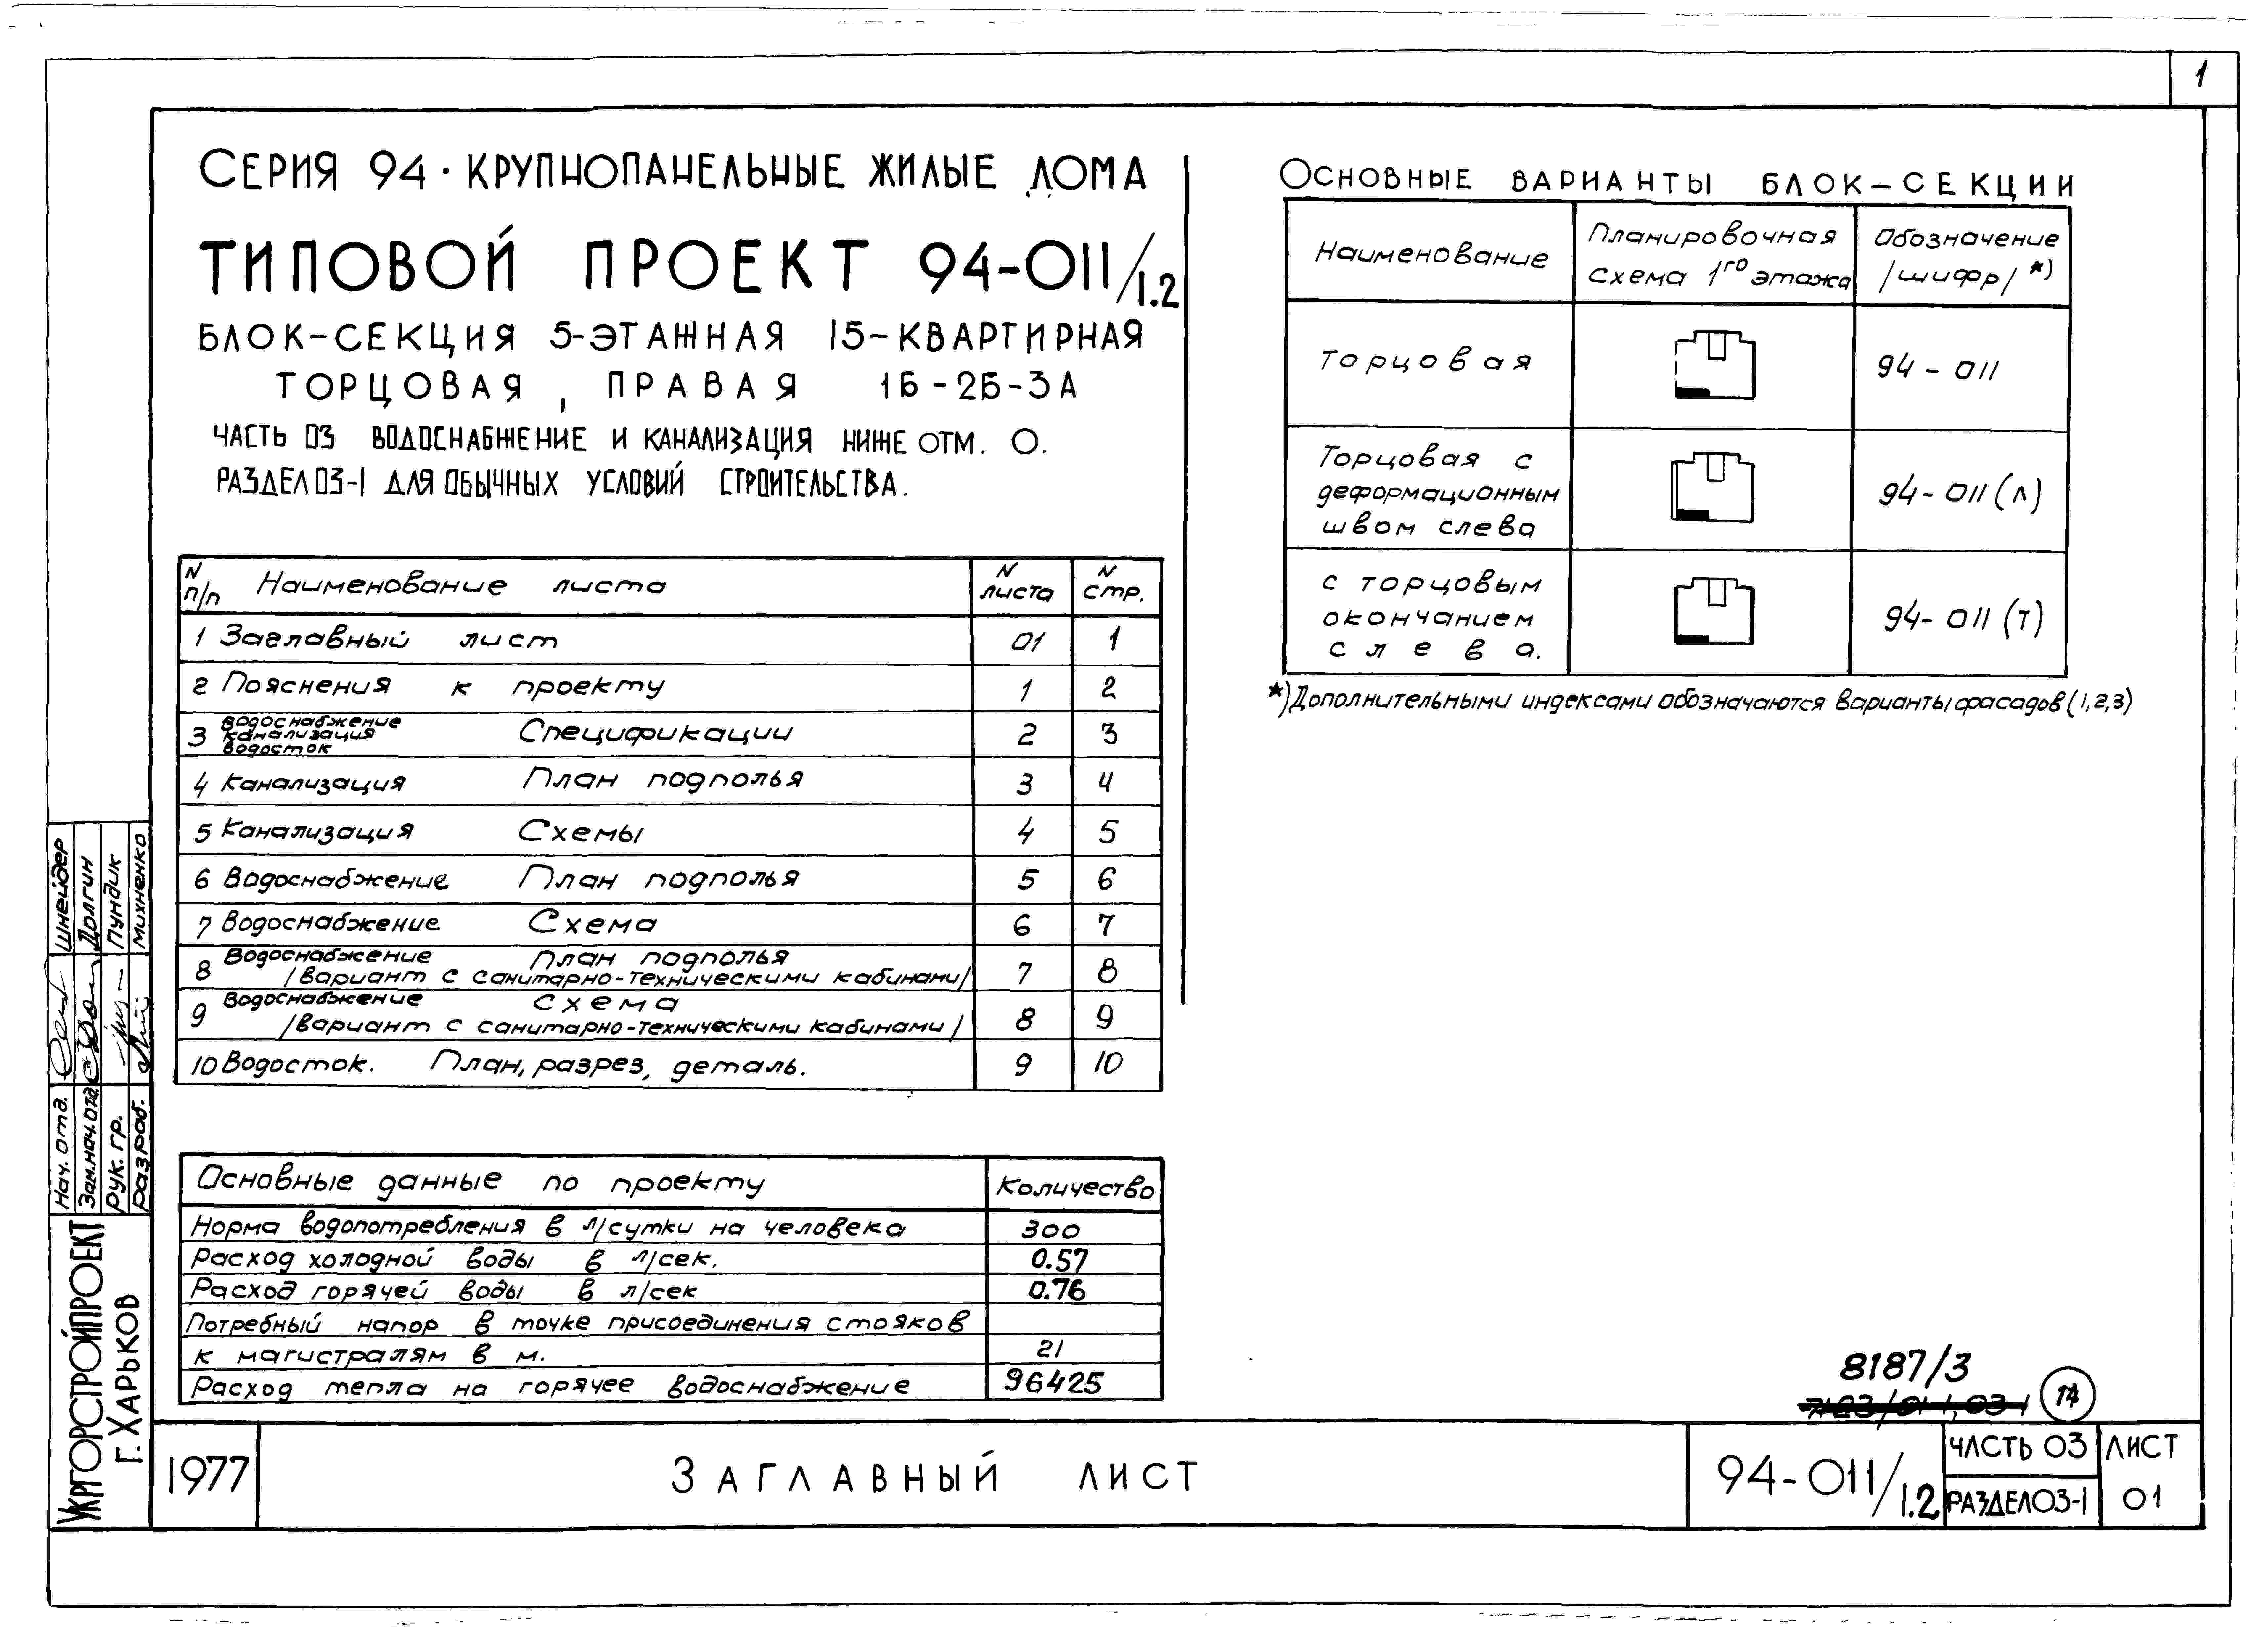 1
СЕРИЯ 94 · КРУПНОПАНЕЛЬНЫЕ ЖИЛЫЕ ДОМА
ТИПОВОЙ ПРОЕКТ 94-011/1.2
БЛОК-СЕКЦИЯ 5-ЭТАЖНАЯ 15-КВАРТИРНАЯ
ТОРЦОВАЯ, ПРАВАЯ 1Б-2Б-3А
ЧАСТЬ 03 ВОДОСНАБЖЕНИЕ И КАНАЛИЗАЦИЯ НИЖЕ ОТМ. О.
РАЗДЕЛ 03-1 ДЛЯ ОБЫЧНЫХ УСЛОВИЙ СТРОИТЕЛЬСТВА.
N п/п Наименование листа N листа N стр.
1 Заглавный лист 01 1
2 Пояснения к проекту 1 2
3 Водоснабжение канализация водосток Спецификации 2 3
4 Канализация План подполья 3 4
5 Канализация Схемы 4 5
6 Водоснабжение План подполья 5 6
7 Водоснабжение Схема 6 7
8 Водоснабжение План подполья 7 8
/вариант с санитарно-техническими кабинами/
9 Водоснабжение схема 8 9
/вариант с санитарно-техническими кабинами/
10 Водосток. План, разрез, деталь. 9 10
Основные данные по проекту Количество
Норма водопотребления в л/сутки на человека 300
Расход холодной воды в л/сек. 0.57
Расход горячей воды в л/сек 0.76
Потребный напор в точке присоединения стояков
к магистралям в м. 21
Расход тепла на горячее водоснабжение 96425
ОСНОВНЫЕ ВАРИАНТЫ БЛОК-СЕКЦИИ
Наименование Планировочная схема 1го этажа Обозначение /шифр/ *)
торцовая 94-011
Торцовая с
деформационным
швом слева 94-011(л)
с торцовым
окончанием
слева. 94-011(т)
*) Дополнительными индексами обозначаются варианты фасадов (1,2,3)
8187/3
14
Нач. отд. Шнейдер
Зам.нач.отд Долгин
Рук. гр. Пундик
Разраб. Михненко
УКРГОРСТРОЙПРОЕКТ
Г. ХАРЬКОВ
1977
ЗАГЛАВНЫЙ ЛИСТ
94-011/1.2
ЧАСТЬ 03
РАЗДЕЛ 03-1
ЛИСТ
01